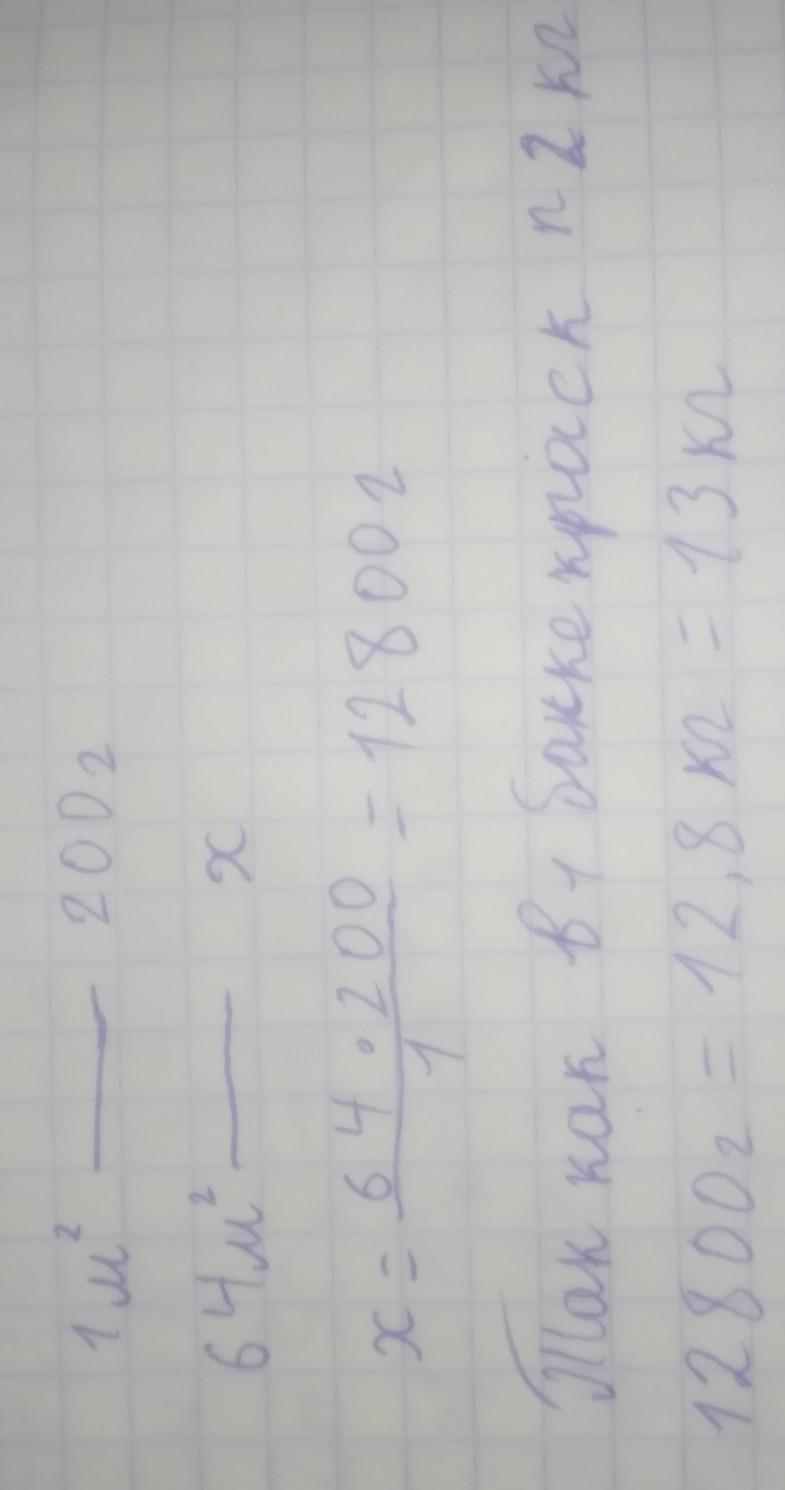 1 м² — 200 г
64 м² — х
х = 64 · 200 / 1 = 12800 г
Так как в 1 бакке краск п 2 кг
12800 г = 12,8 кг = 13 кг